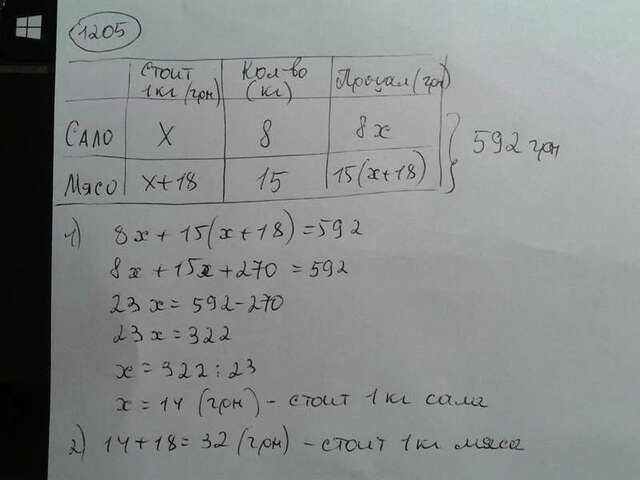 1205
Стоит 1кг (грн) Кол-во (кг) Продал (грн)
Сало х 8 8х
Мясо х+18 15 15(х+18) } 592 грн
1) 8х + 15(х+18) = 592
8х + 15х + 270 = 592
23х = 592-270
23х = 322
х = 322 : 23
х = 14 (грн) - стоит 1кг сала
2) 14+18 = 32 (грн) - стоит 1кг мяса